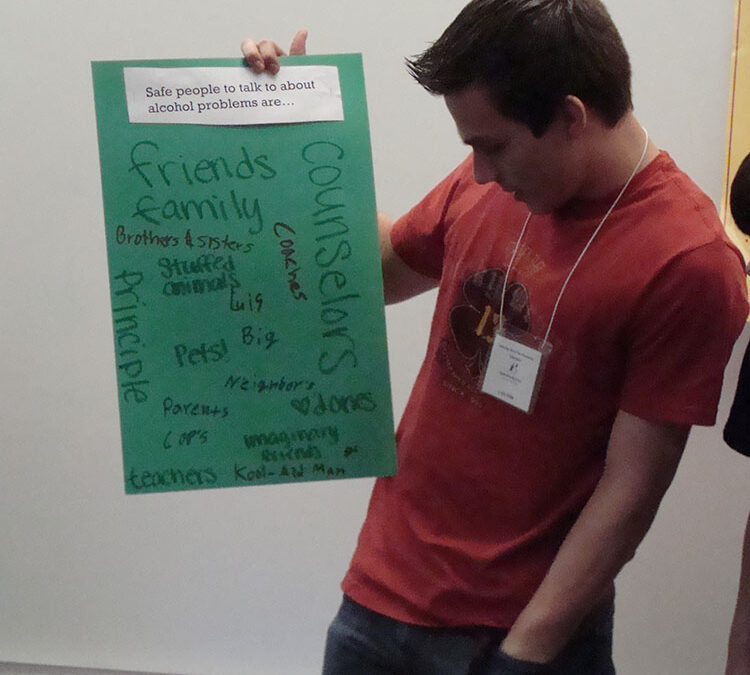 Safe people to talk to about
alcohol problems are...
friends
family
Counselors
Brothers & sisters
Coaches
Stuffed
animals
Principle
Big
Pets!
Neighbors
Parents
♡dames
COP'S
imaginary
friends
teachers
Kool-Aid Man